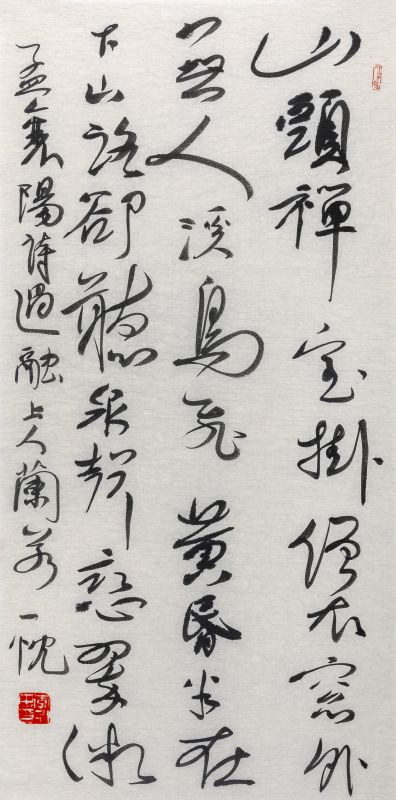 山頭禪室掛僧衣窓外
無人溪鳥飛黃昏半在
下山路卻聽泉聲戀翠微
孟襄陽詩過融上人蘭若 一忱